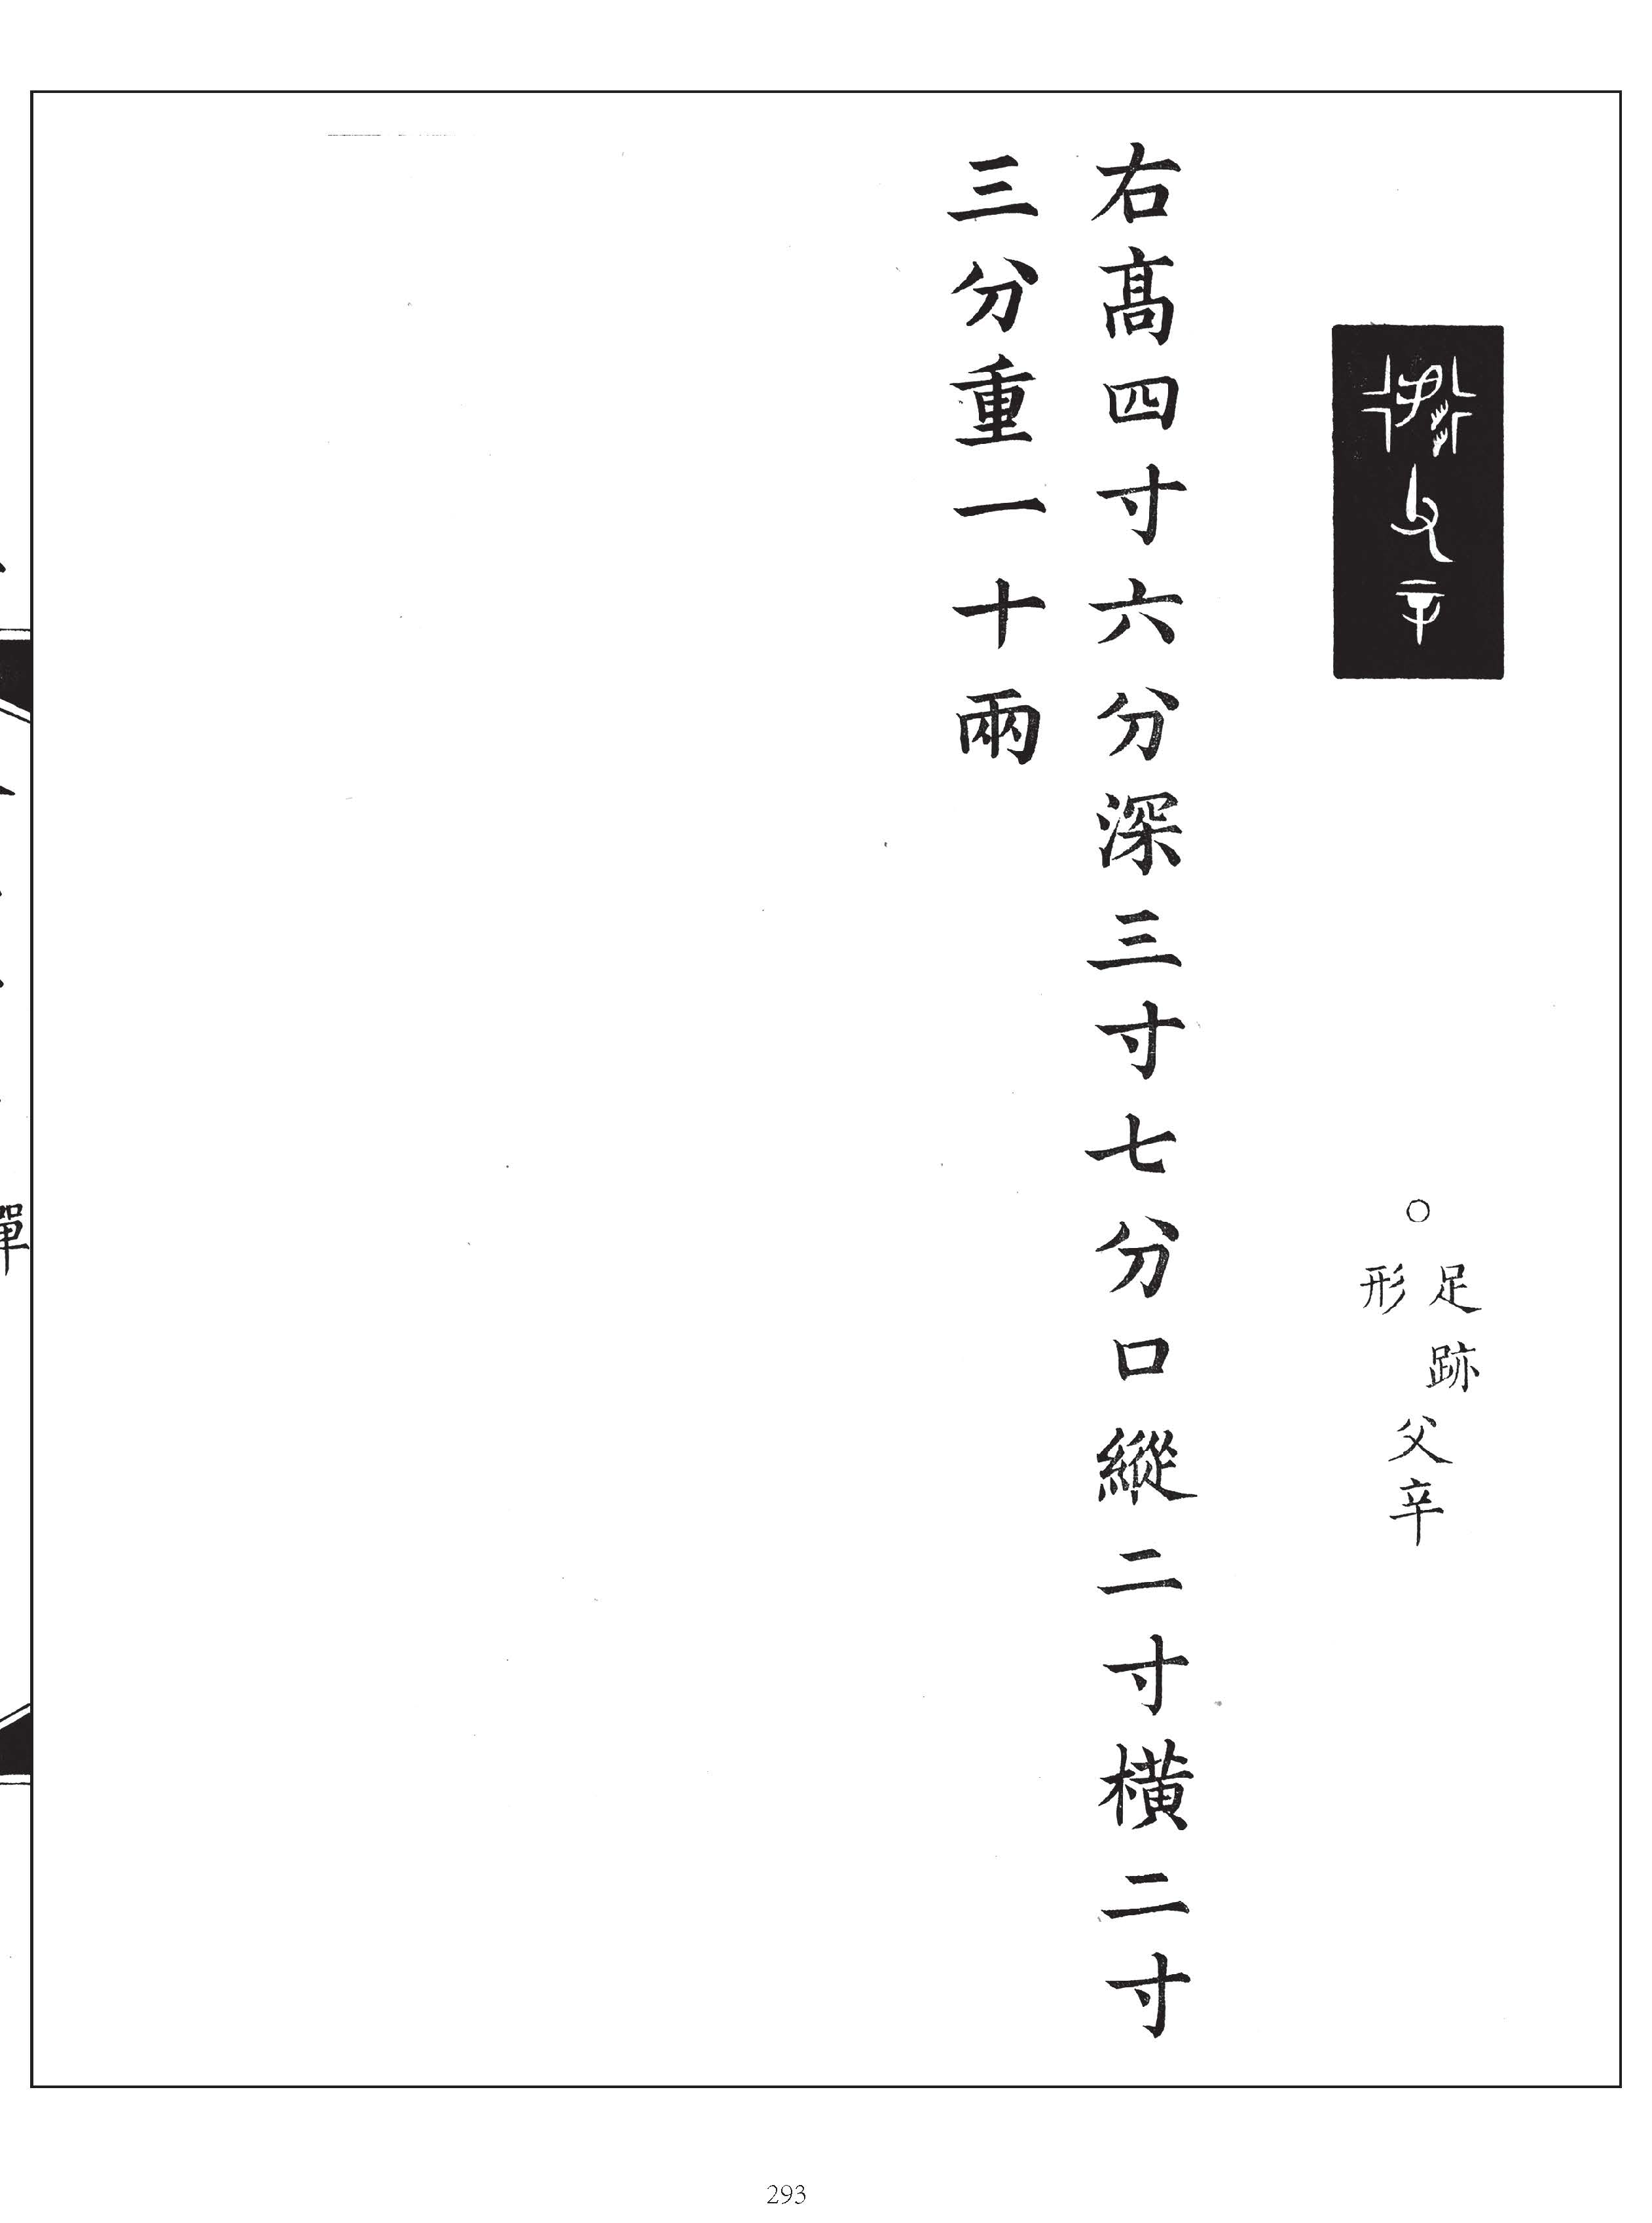 ○足跡形父辛
右高四寸六分深三寸七分口縱二寸橫二寸
三分重一十兩
單
293